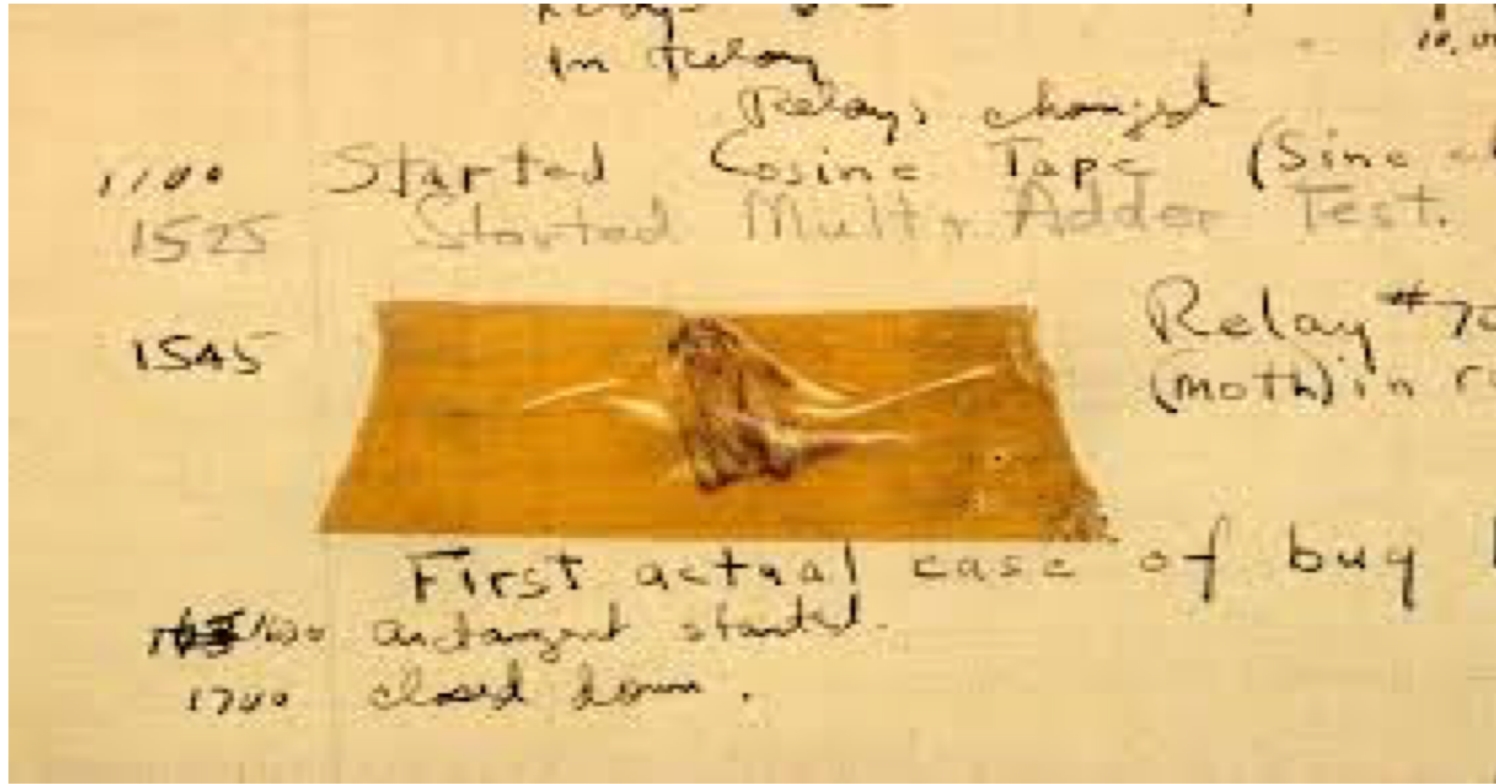 in relay
Relays changed
1100 Started Cosine Tape (Sine
1525 Started Mult+Adder Test.
1545 Relay #70
(moth) in
First actual case of bug
1600 arctangent started.
1700 closed down.